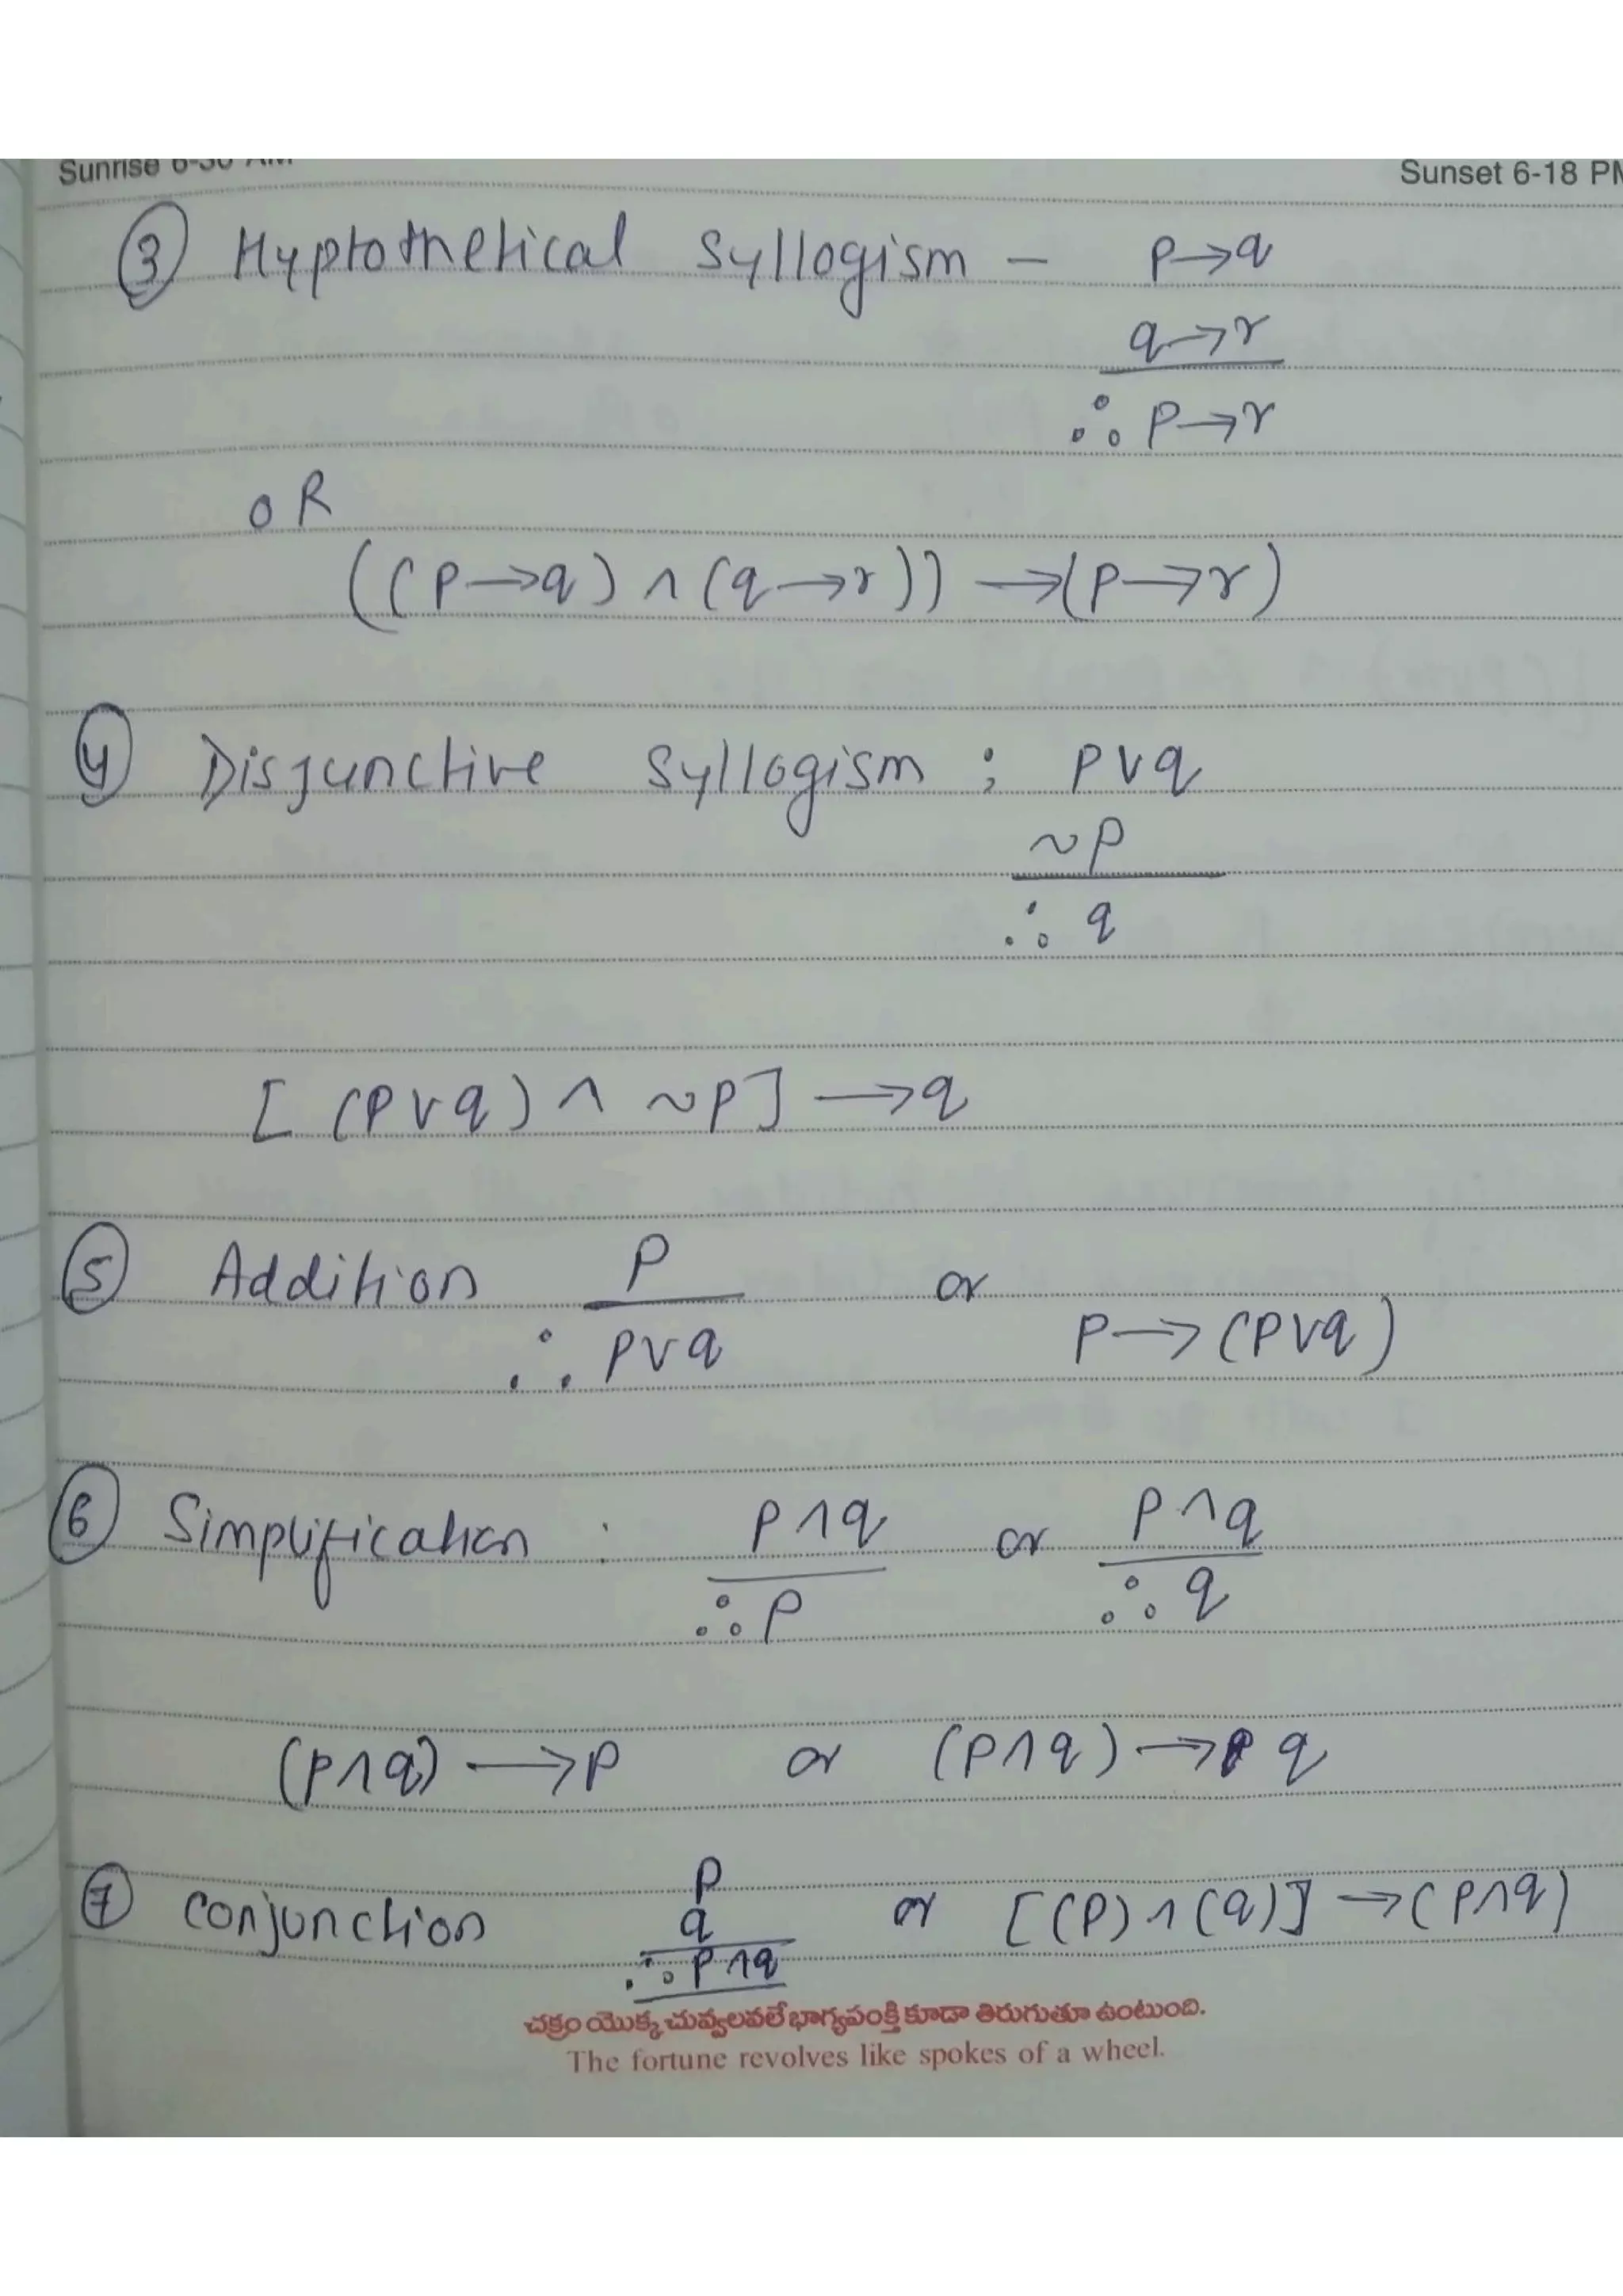 Sunrise 6-30 AM
Sunset 6-18 PM
③ Hyptothetical Syllogism – p→q
q→r
∴ p→r
OR
((p→q) ∧ (q→r)) →(p→r)
④ Disjunctive Syllogism ; p∨q
~p
∴ q
[ (p∨q) ∧ ~p] →q
⑤ Addition p or
∴ p∨q p→(p∨q)
⑥ Simplification : p∧q or p∧q
∴ p ∴ q
(p∧q) →p or (p∧q) → q
⑦ Conjunction p
q or [(p) ∧ (q)] →(p∧q)
∴ p∧q
చక్రం యొక్క చువ్వలవలే భాగ్యపంక్తి కూడా తిరుగుతూ ఉంటుంది.
The fortune revolves like spokes of a wheel.